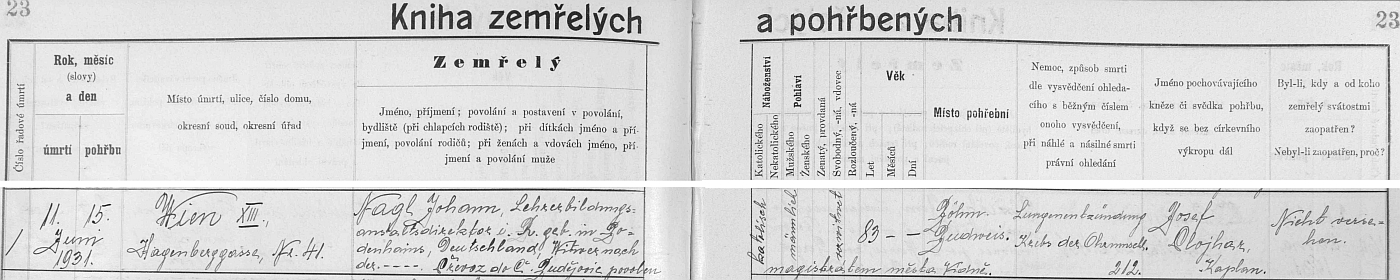 23
Kniha zemřelých
a pohřbených
23
Číslo řadové úmrtí
Rok, měsíc
(slovy)
a den
úmrtí
pohřbu
Místo úmrtí, ulice, číslo domu,
okresní soud, okresní úřad
Zemřelý
Jméno, příjmení; povolání a postavení v povolání,
bydliště (při chlapcích rodiště); při dítkách jméno a pří-
jmení, povolání rodičů; při ženách a vdovách jméno, pří-
jmení a povolání muže
Náboženství
Katolického
Nekatolického
Pohlaví
Mužského
Ženského
Ženatý, provdaná
Svobodný, -ná, vdovec
Rozloučený, -ná
Věk
Let
Měsíců
Dní
Místo pohřební
Nemoc, způsob smrti
dle vysvědčení ohleda-
cího s běžným číslem
onoho vysvědčení,
při náhlé a násilné smrti
právní ohledání
Jméno pochovávajícího
kněze či svědka pohřbu,
když se bez církevního
výkropu dál
Byl-li, kdy a od koho
zemřelý svátostmi
zaopatřen?
Nebyl-li zaopatřen, proč?
1
11. 15.
Juni
1931.
Wien XIII.,
Hagenberggasse, Nr. 41.
Nagl Johann, Lehrerbildungs-
anstaltsdirektor i. R. geb. in Bo-
denhains, Deutschland, Witwer nach
der. ----. Převoz do Č. Budějovic povolen
katolisch
männlich
verwitwet
83 — —
Böhm.
Budweis.
Lungenentzündung
Krebs der Ohrmusch.
212.
Josef
Olojhar,
Kaplan.
Nicht verse-
hen.
magistrátem města Vídně.